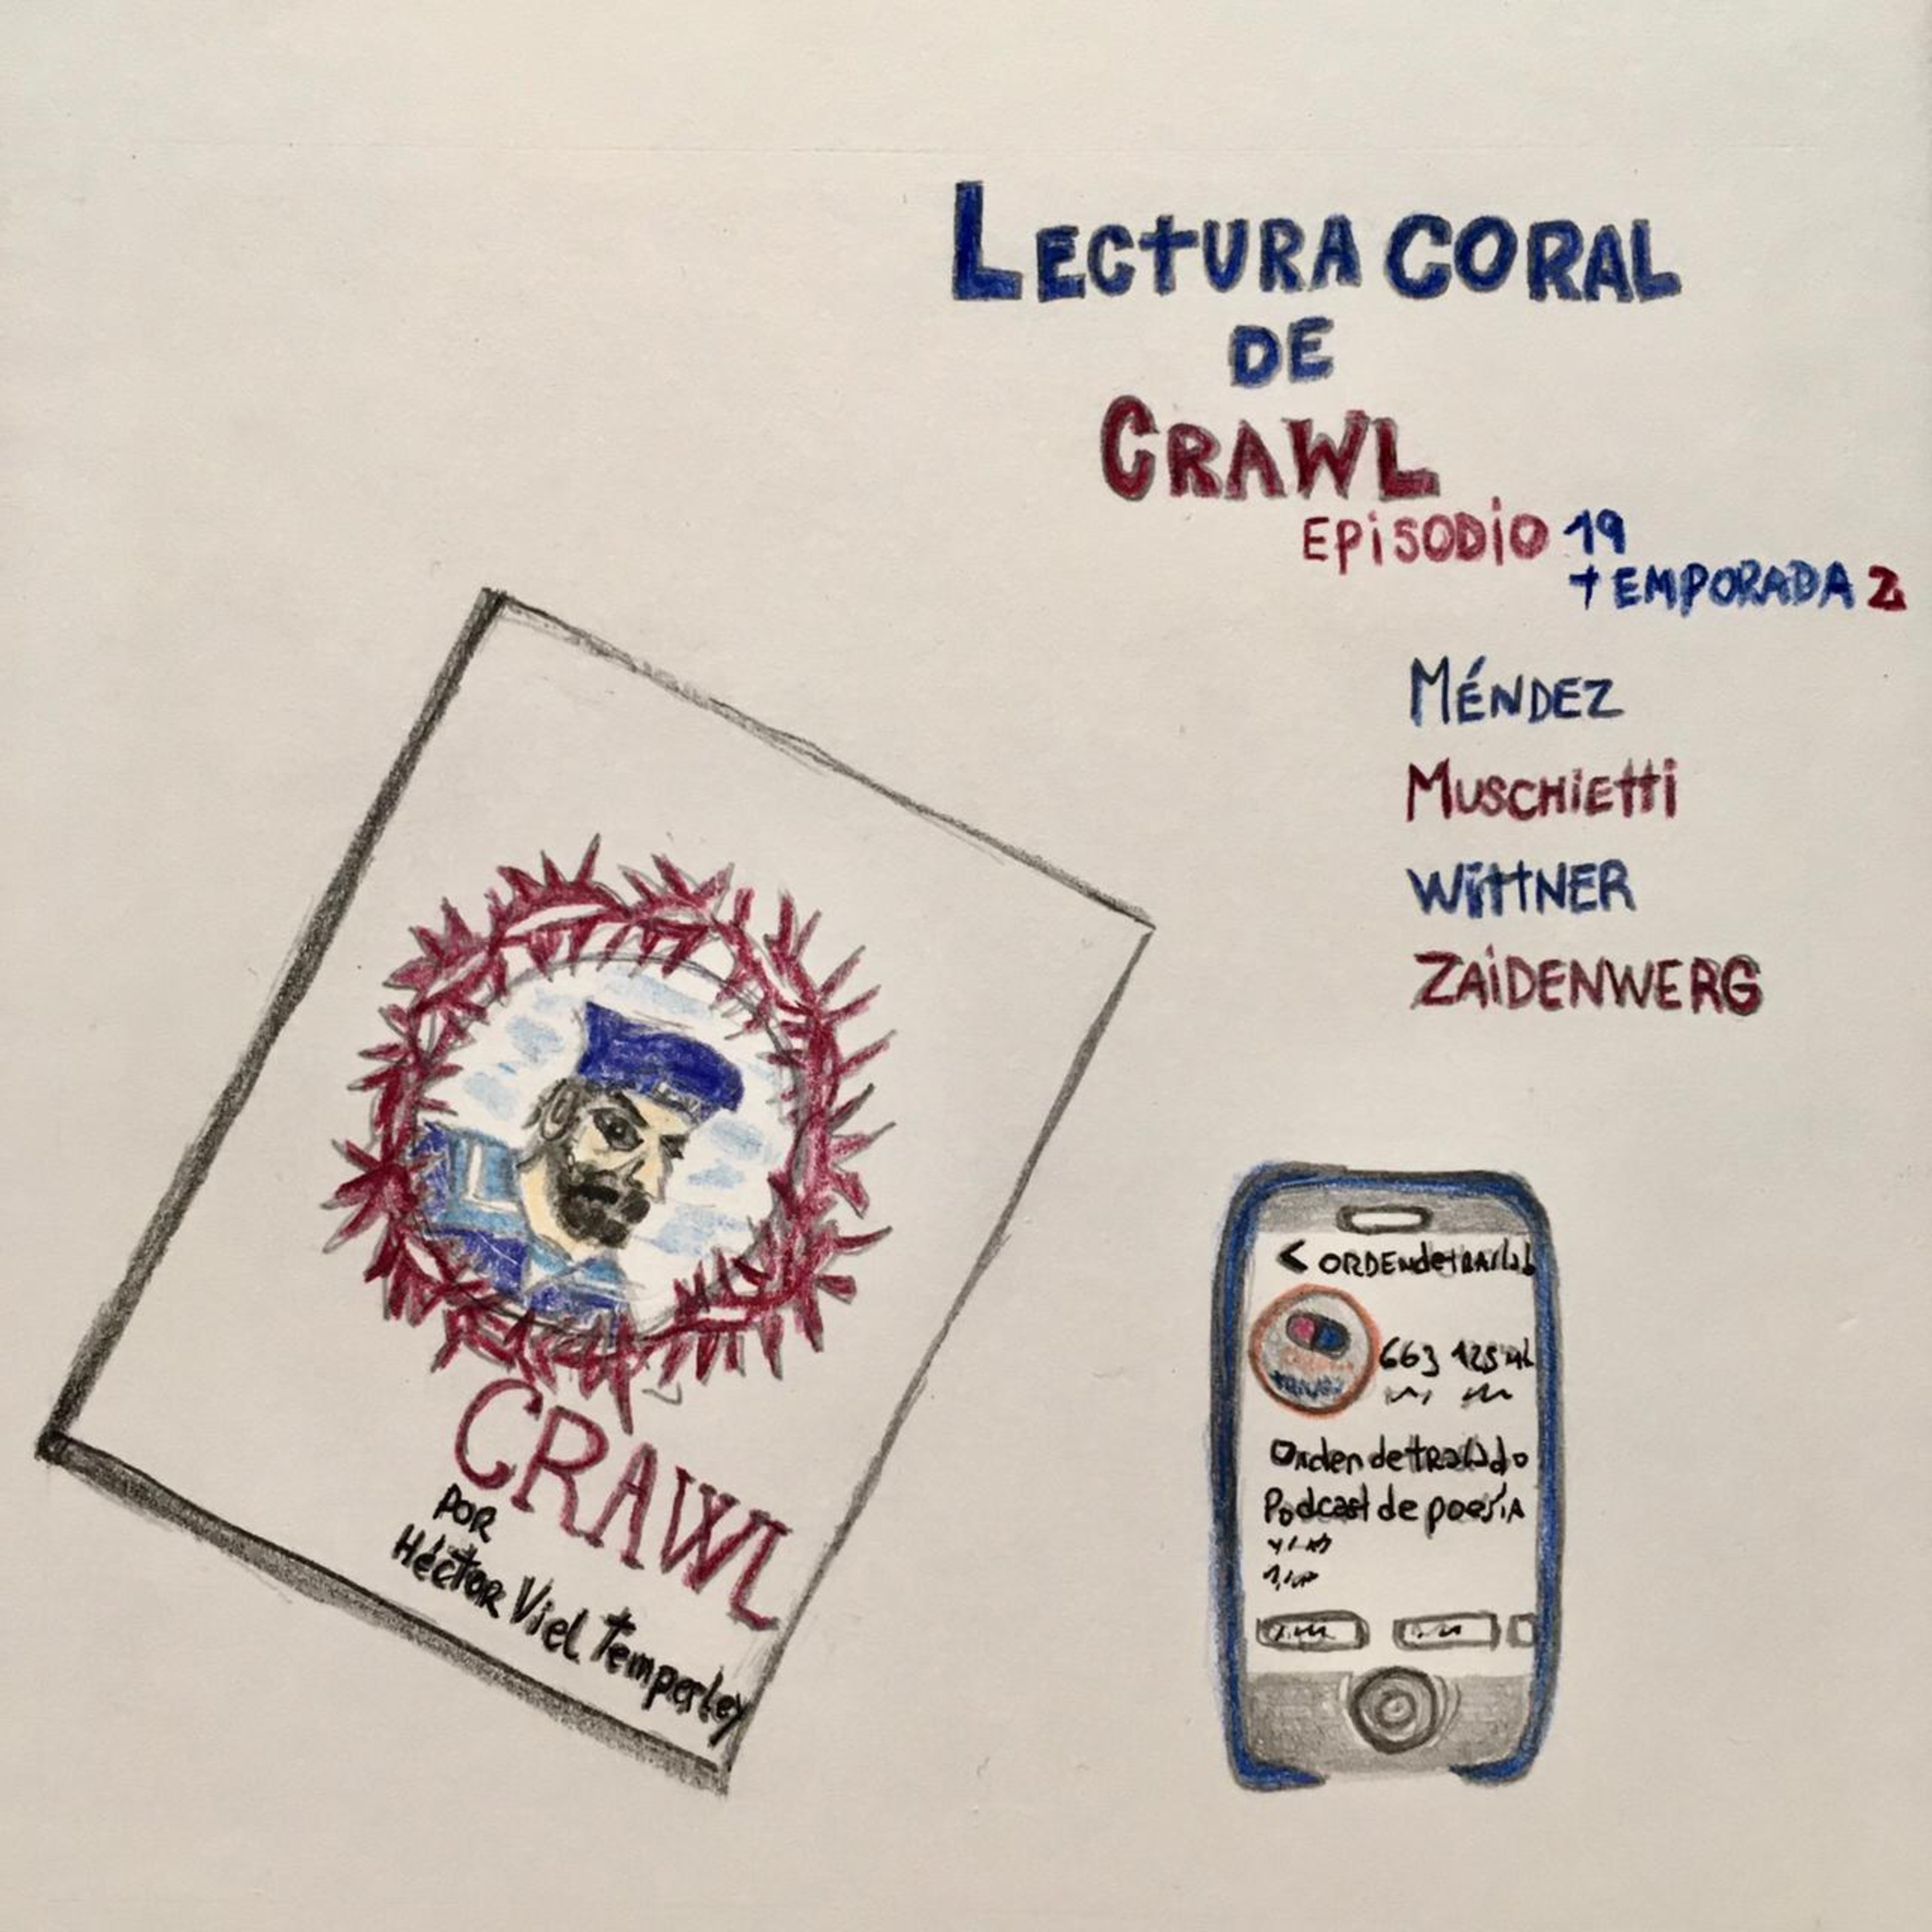 LECTURA CORAL
DE
CRAWL
EPISODIO 19
TEMPORADA 2
MÉNDEZ
MUSCHIETTI
WITTNER
ZAIDENWERG
CRAWL
POR
Héctor Viel Temperley
< ORDENdetRAslad
663 125
Orden detraslado
Podcast de poesía